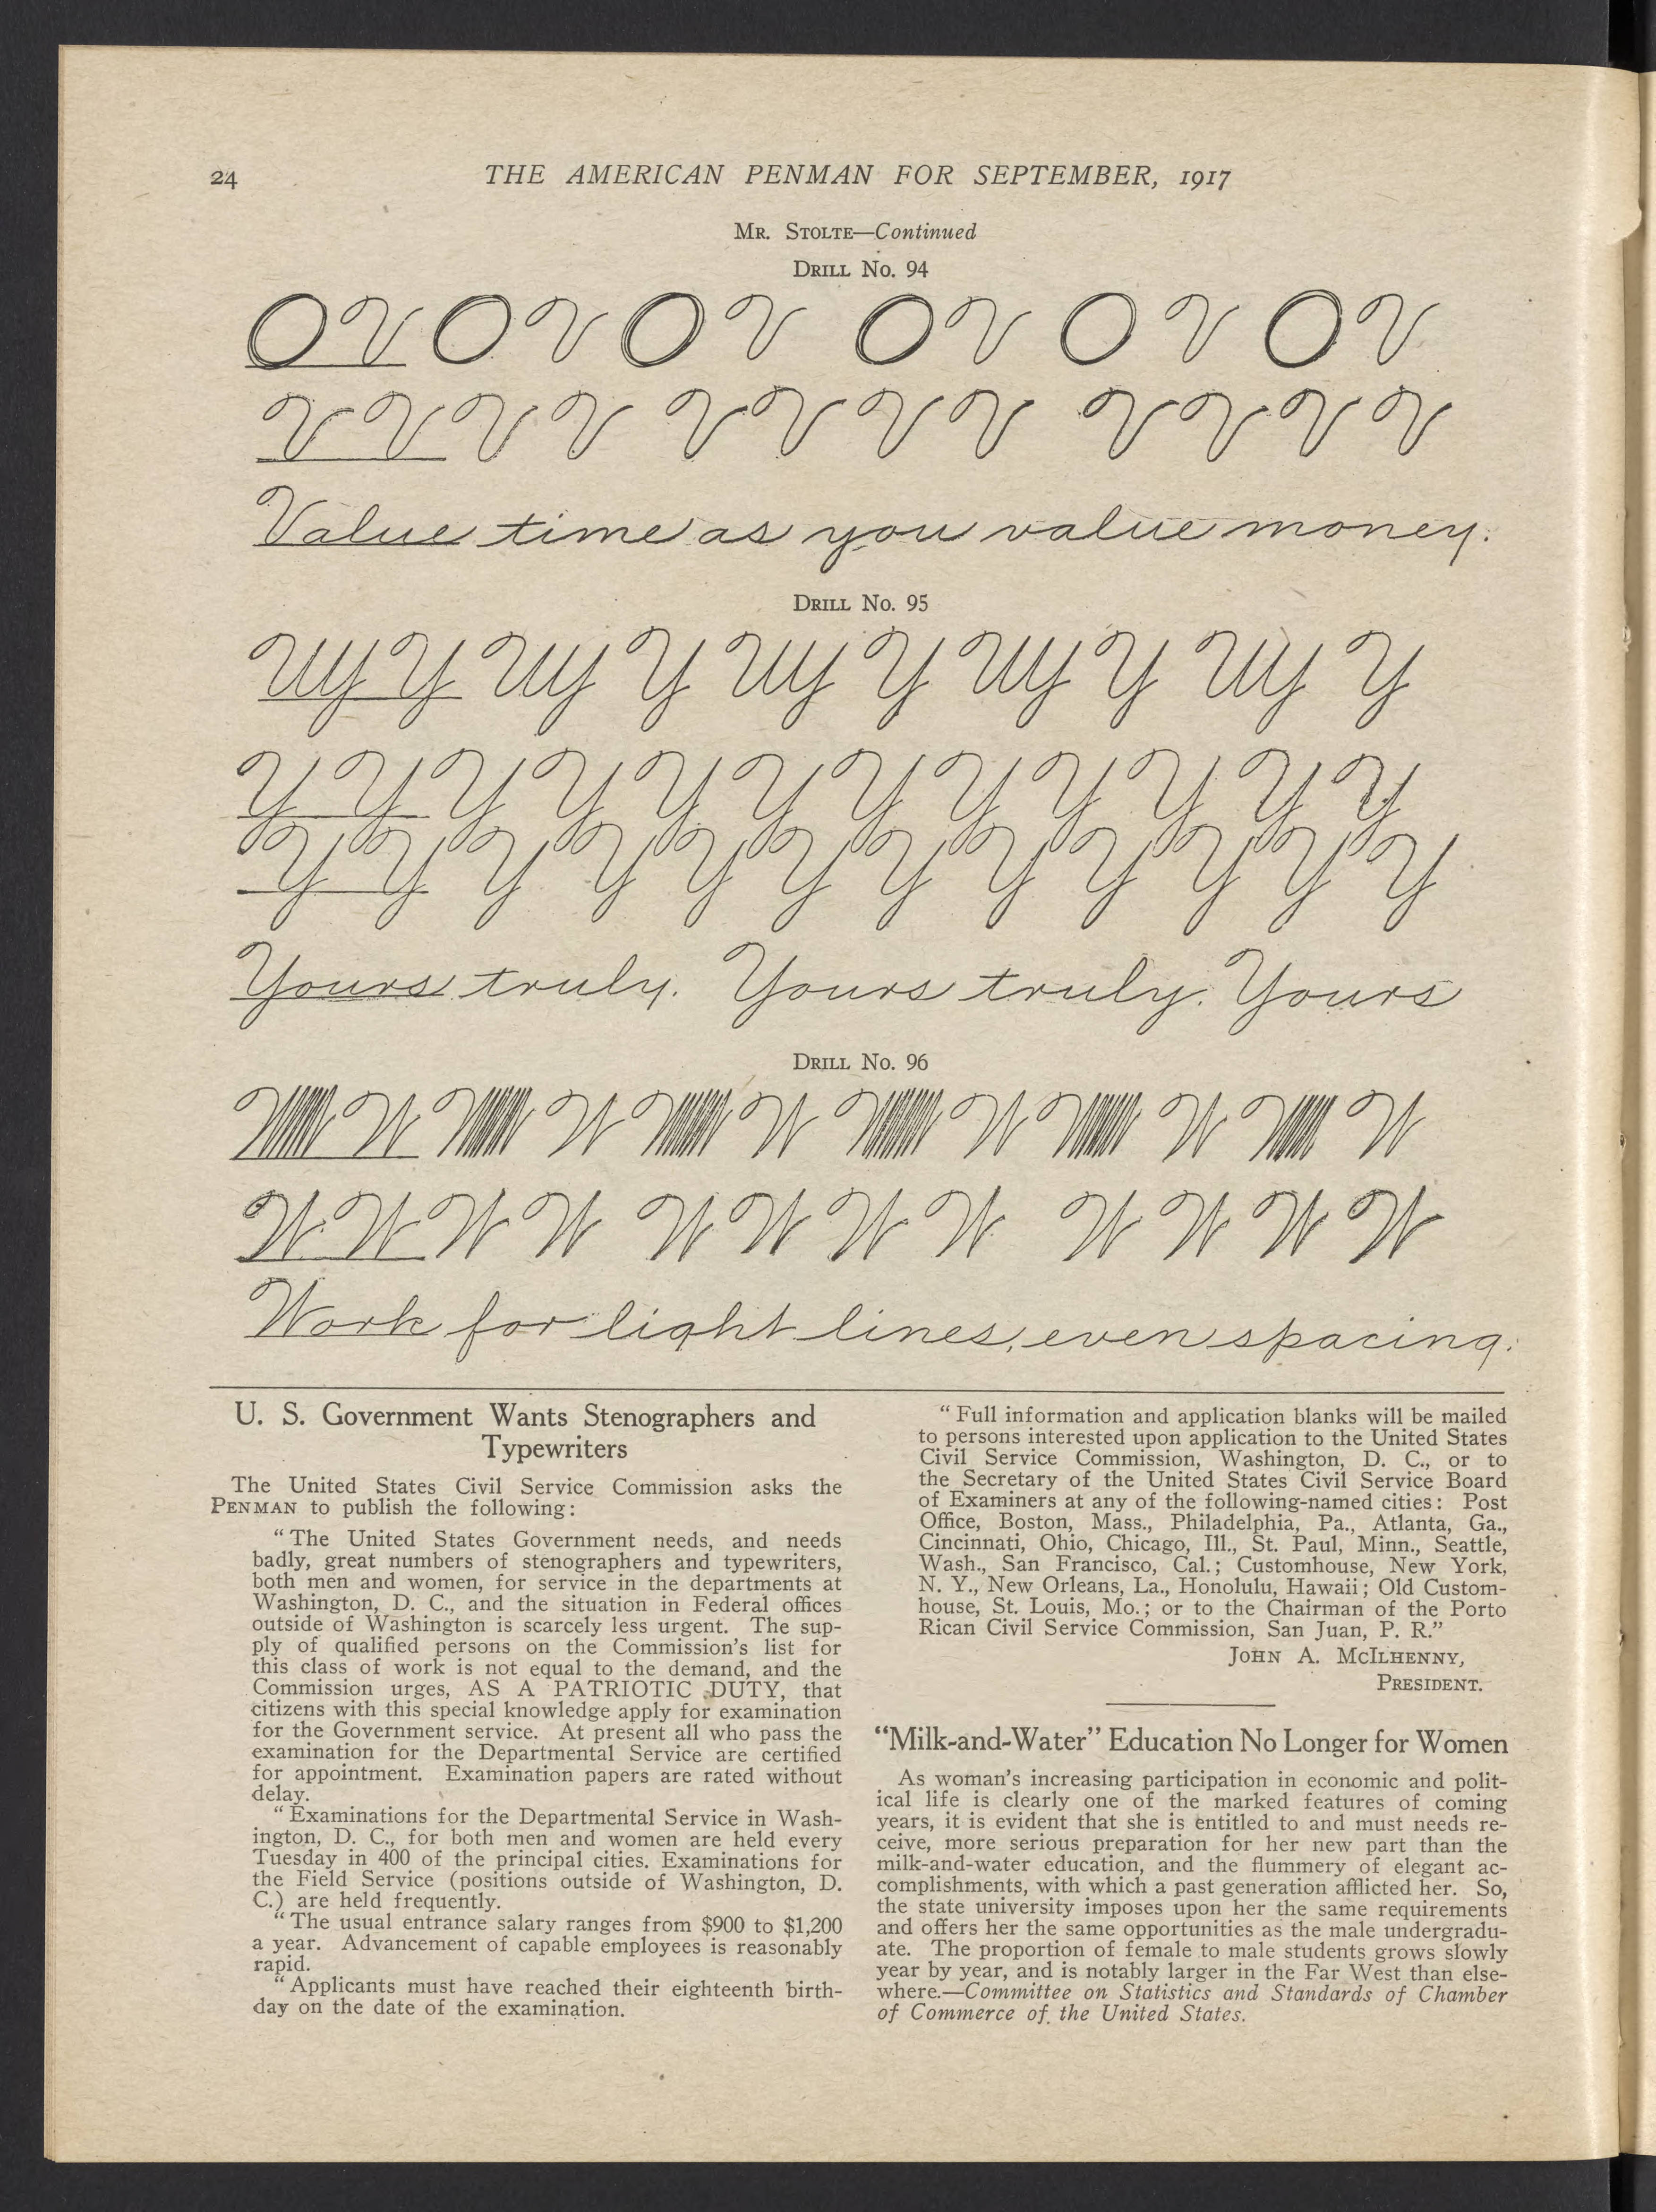 24
THE AMERICAN PENMAN FOR SEPTEMBER, 1917
MR. STOLTE—Continued
DRILL No. 94
O V O V O V O V O V O V
V V V V V V V V V V V V
Value time as you value money.
DRILL No. 95
Uy Y Uy Y Uy Y Uy Y Uy Y
Y Y Y Y Y Y Y Y Y Y Y Y
Y Y Y Y Y Y Y Y Y Y Y Y
Yours truly. Yours truly. Yours
DRILL No. 96
W W W W W W
W W W W W W W W W W W W
Work for light lines, even spacing.
U. S. Government Wants Stenographers and
Typewriters
The United States Civil Service Commission asks the
PENMAN to publish the following:
“The United States Government needs, and needs
badly, great numbers of stenographers and typewriters,
both men and women, for service in the departments at
Washington, D. C., and the situation in Federal offices
outside of Washington is scarcely less urgent. The sup-
ply of qualified persons on the Commission’s list for
this class of work is not equal to the demand, and the
Commission urges, AS A PATRIOTIC DUTY, that
citizens with this special knowledge apply for examination
for the Government service. At present all who pass the
examination for the Departmental Service are certified
for appointment. Examination papers are rated without
delay.
“Examinations for the Departmental Service in Wash-
ington, D. C., for both men and women are held every
Tuesday in 400 of the principal cities. Examinations for
the Field Service (positions outside of Washington, D.
C.) are held frequently.
“The usual entrance salary ranges from $900 to $1,200
a year. Advancement of capable employees is reasonably
rapid.
“Applicants must have reached their eighteenth birth-
day on the date of the examination.
“Full information and application blanks will be mailed
to persons interested upon application to the United States
Civil Service Commission, Washington, D. C., or to
the Secretary of the United States Civil Service Board
of Examiners at any of the following-named cities: Post
Office, Boston, Mass., Philadelphia, Pa., Atlanta, Ga.,
Cincinnati, Ohio, Chicago, Ill., St. Paul, Minn., Seattle,
Wash., San Francisco, Cal.; Customhouse, New York,
N. Y., New Orleans, La., Honolulu, Hawaii; Old Custom-
house, St. Louis, Mo.; or to the Chairman of the Porto
Rican Civil Service Commission, San Juan, P. R.”
JOHN A. MCILHENNY,
PRESIDENT.
“Milk-and-Water” Education No Longer for Women
As woman’s increasing participation in economic and polit-
ical life is clearly one of the marked features of coming
years, it is evident that she is entitled to and must needs re-
ceive, more serious preparation for her new part than the
milk-and-water education, and the flummery of elegant ac-
complishments, with which a past generation afflicted her. So,
the state university imposes upon her the same requirements
and offers her the same opportunities as the male undergradu-
ate. The proportion of female to male students grows slowly
year by year, and is notably larger in the Far West than else-
where.—Committee on Statistics and Standards of Chamber
of Commerce of the United States.